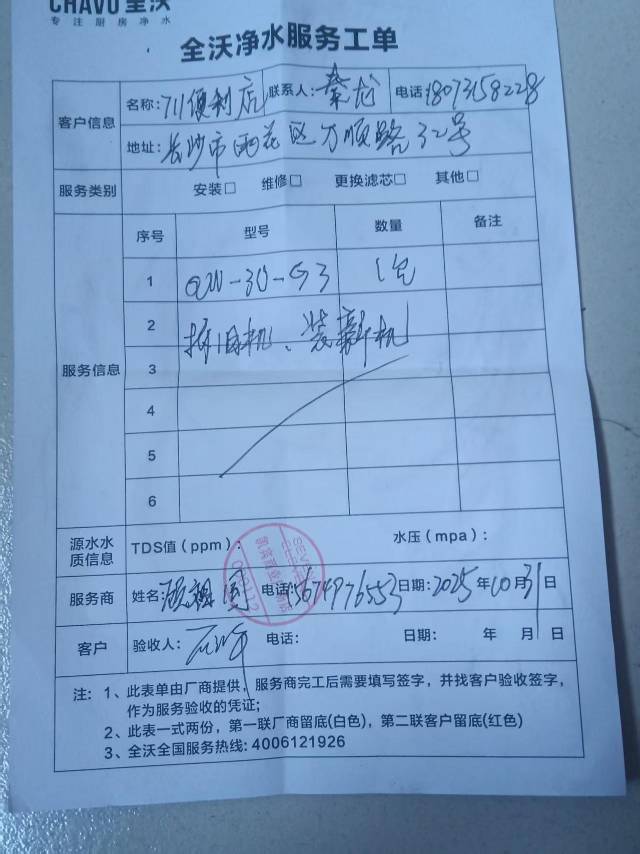 CHAVO 全沃
专注厨房净水
全沃净水服务工单
客户信息 名称：711便利店 联系人：秦龙 电话 18073158228
地址：长沙市雨花区万顺路32号
服务类别 安装□ 维修□ 更换滤芯□ 其他□
服务信息 序号 型号 数量 备注
1 QW-30-G3 1台
2 拆旧机、装新机
3
4
5
6
源水水质信息 TDS值（ppm）： 水压（mpa）：
服务商 姓名： 电话：15674976553 日期：2025年10月31日
客户 验收人： 电话： 日期： 年 月 日
注：1、此表单由厂商提供，服务商完工后需要填写签字，并找客户验收签字，
作为服务验收的凭证；
2、此表一式两份，第一联厂商留底(白色)，第二联客户留底(红色)
3、全沃全国服务热线：4006121926